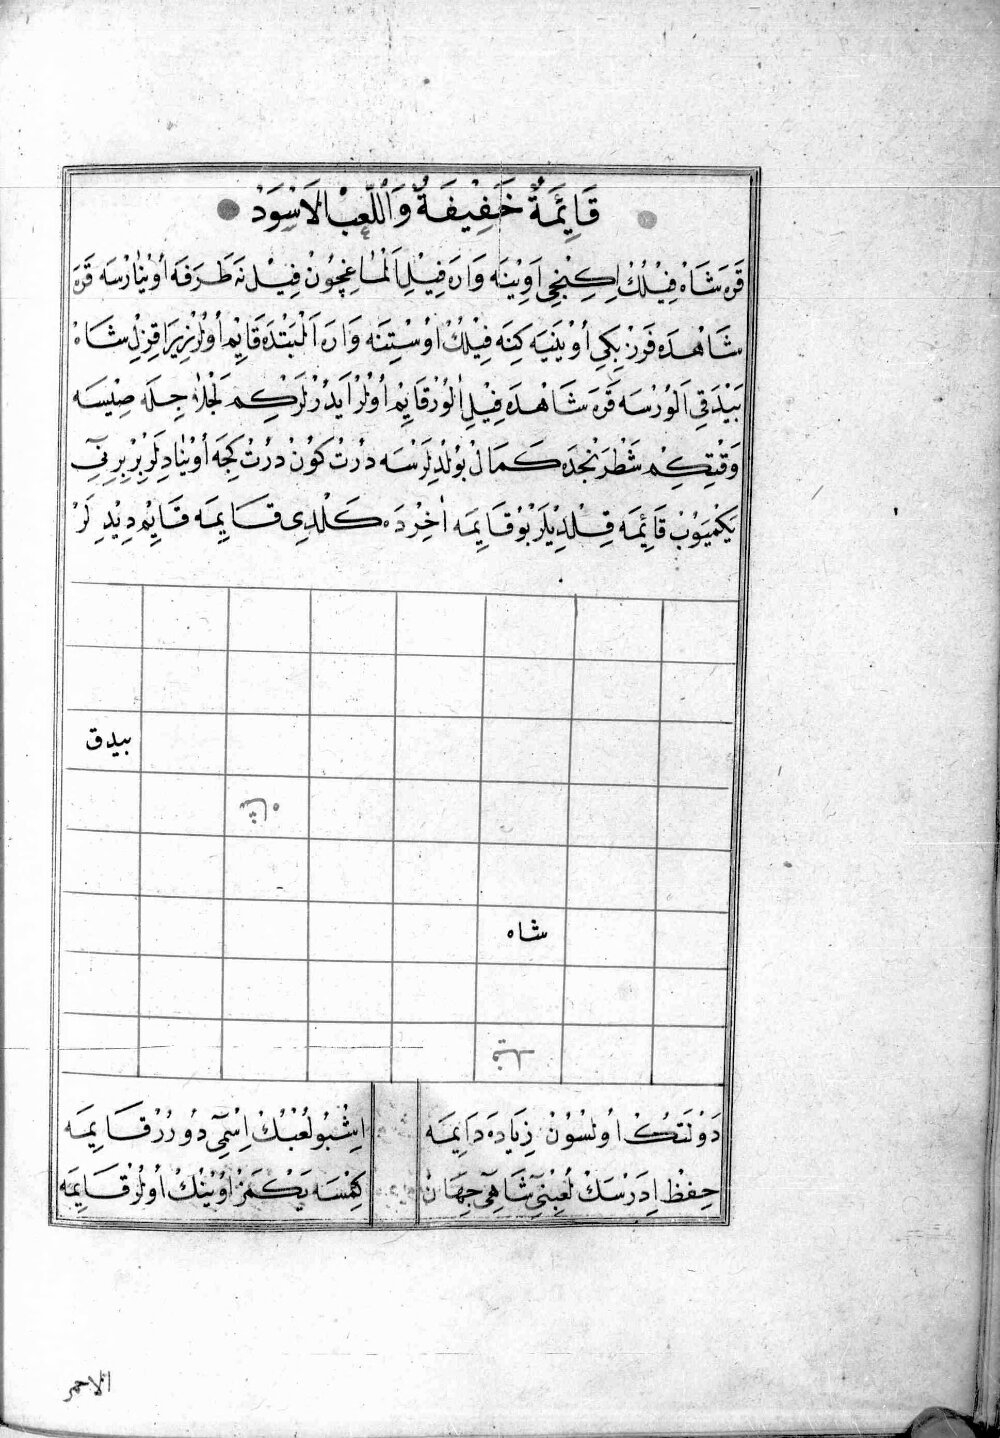 قَائِمَةٌ خَفِيفَةٌ وَاللَّعِبُ الْأَسْوَدْ
قَرَه شَاهْ فِيلُكْ اِكِنْجِي اَوِينَه وَارَه فِيلِ اَلْمَاغِچُونْ فِيلْ نَه طَرَفَه اُوينَارْسَه قَرَه
شَاهْدَه فَرْزِ بِكِي اُويْنَيَه كِنَه فِيلُكْ اُوسْتِنَه وَارَه اَلْبَتْدَه قَايِمْ اُولُرْ زِيرَا قِزِلْ شَاهْ
بَيْدَقِي اَلُورْسَه قَرَه شَاهْدَه فِيلِ اَلُورْ قَايِمْ اُولُرْ اَيْدُرْلَرْكِمْ لَجْلَاجِلَه صِيسَه
وَقْتِكِمْ شَطْرَنْجْدَه كَمَالْ بُولْدِلَرْسَه دُرْتْ كُونْ دُرْتْ كِجَه اُوينَادِلَرْ بِرْبِرِنِي
يَكْمَيُوبْ قَائِمَه قِلْدِيلَرْ بُو قَايِمَه اٰخِرْدَه كَلْدِي قَايِمَه قَايِمْ دِيدِلَرْ
بيدق
شاه
شاه
فيل
دَوْلَتُكْ اُولْسُونْ زِيَادَه دَايِمَه اِشْبُو لُعْبُكْ اِسْمِي دُورُرْ قَايِمَه
حِفْظْ اِدَرْسَكْ لُعْبِنِي شَاهِي جِهَانْ كِمْسَه يَكْمَزْ اُويْنُكْ اُولُرْ قَايِمَه
الاحمر